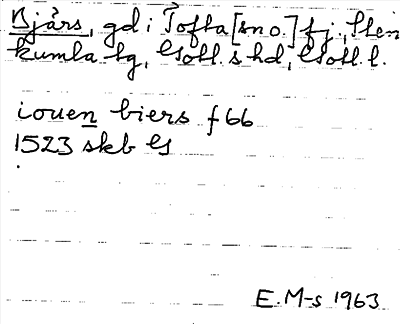 Bjärs, gd i Tofta [sn o.] fj., Sten
kumla tg, Gotl. s hd, Gotl. l.
iouen biers f 66
1523 skb G
E. M-s 1963